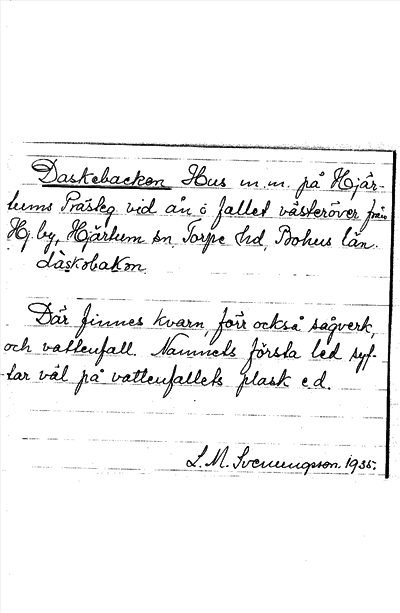 Daskebacken Hus m.m. på Hjär-
tums Prästeg. vid ån o fallet västeröver från
Hj. by, Hjärtum sn, Torpe hd, Bohus län.
dàskəbakən.
Där finnes kvarn, förr också sågverk,
och vattenfall. Namnets första led syf-
tar väl på vattenfallets plask e.d.
S. M. Svenungsson. 1935.